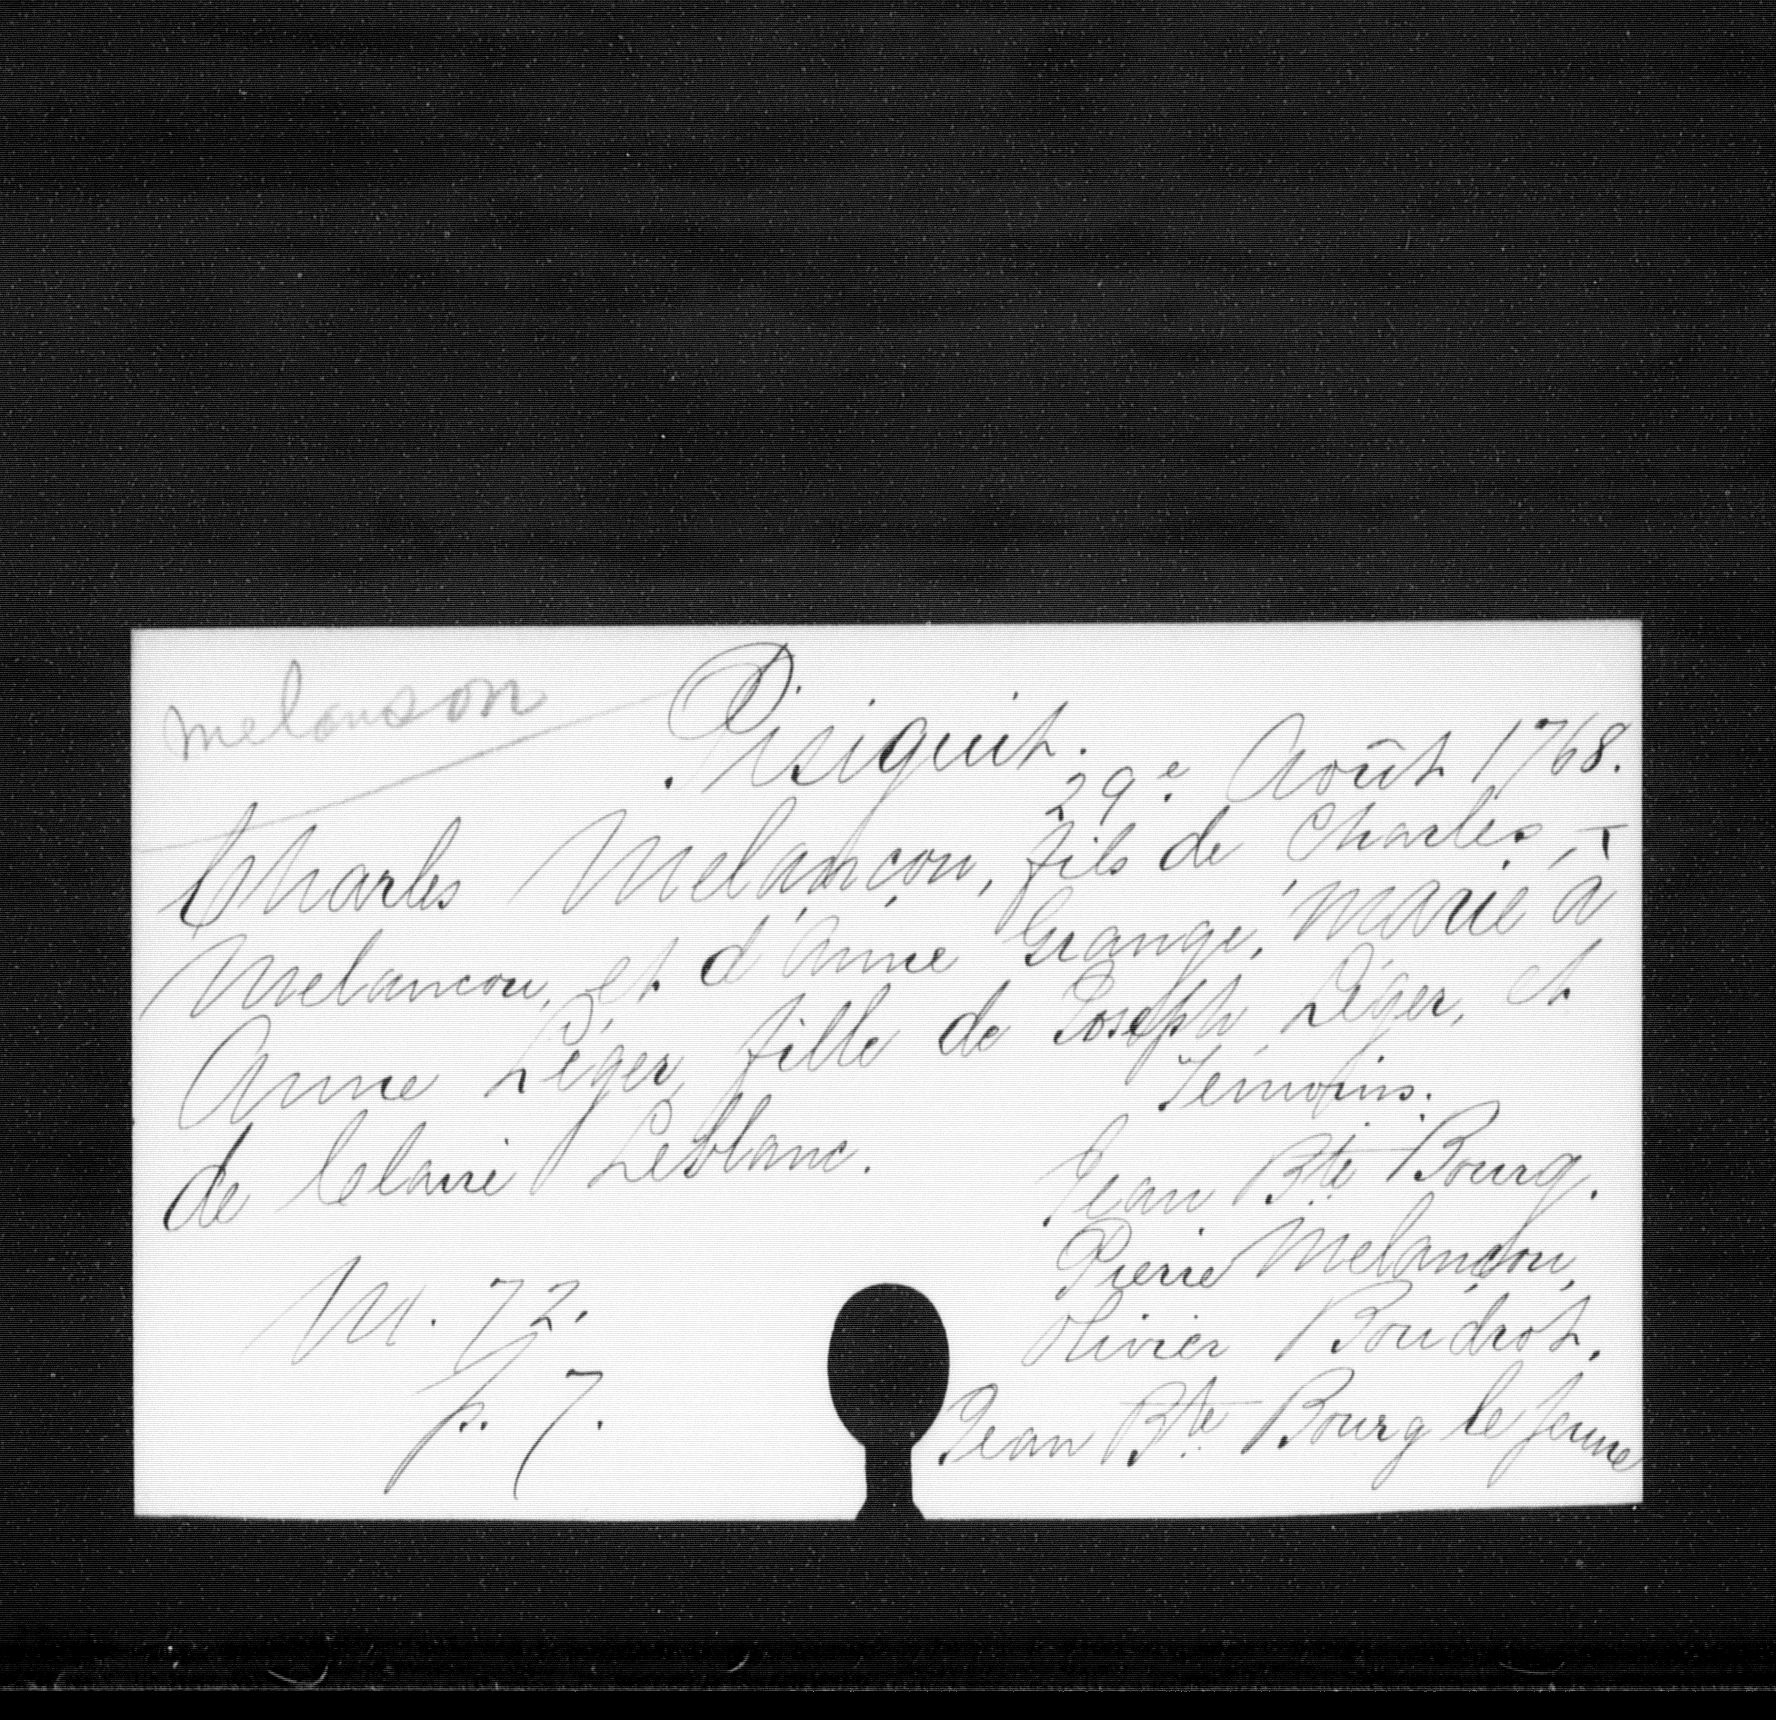 melanson
Pisiguit.
29e Août 1768.
Charles Melançon, fils de Charles,
Melancon, et d'Anne Grange, marié à
Anne Léger, fille de Joseph Léger, et
de Claire Leblanc.
Témoins.
Jean Bte Bourg.
Pierre Melançon,
Olivier Boudrot,
Jean Bte Bourg le jeune
M. 72.
p. 7.